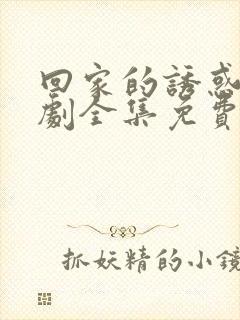 回家的誘惑
劇全集免費
抓妖精的小鏡